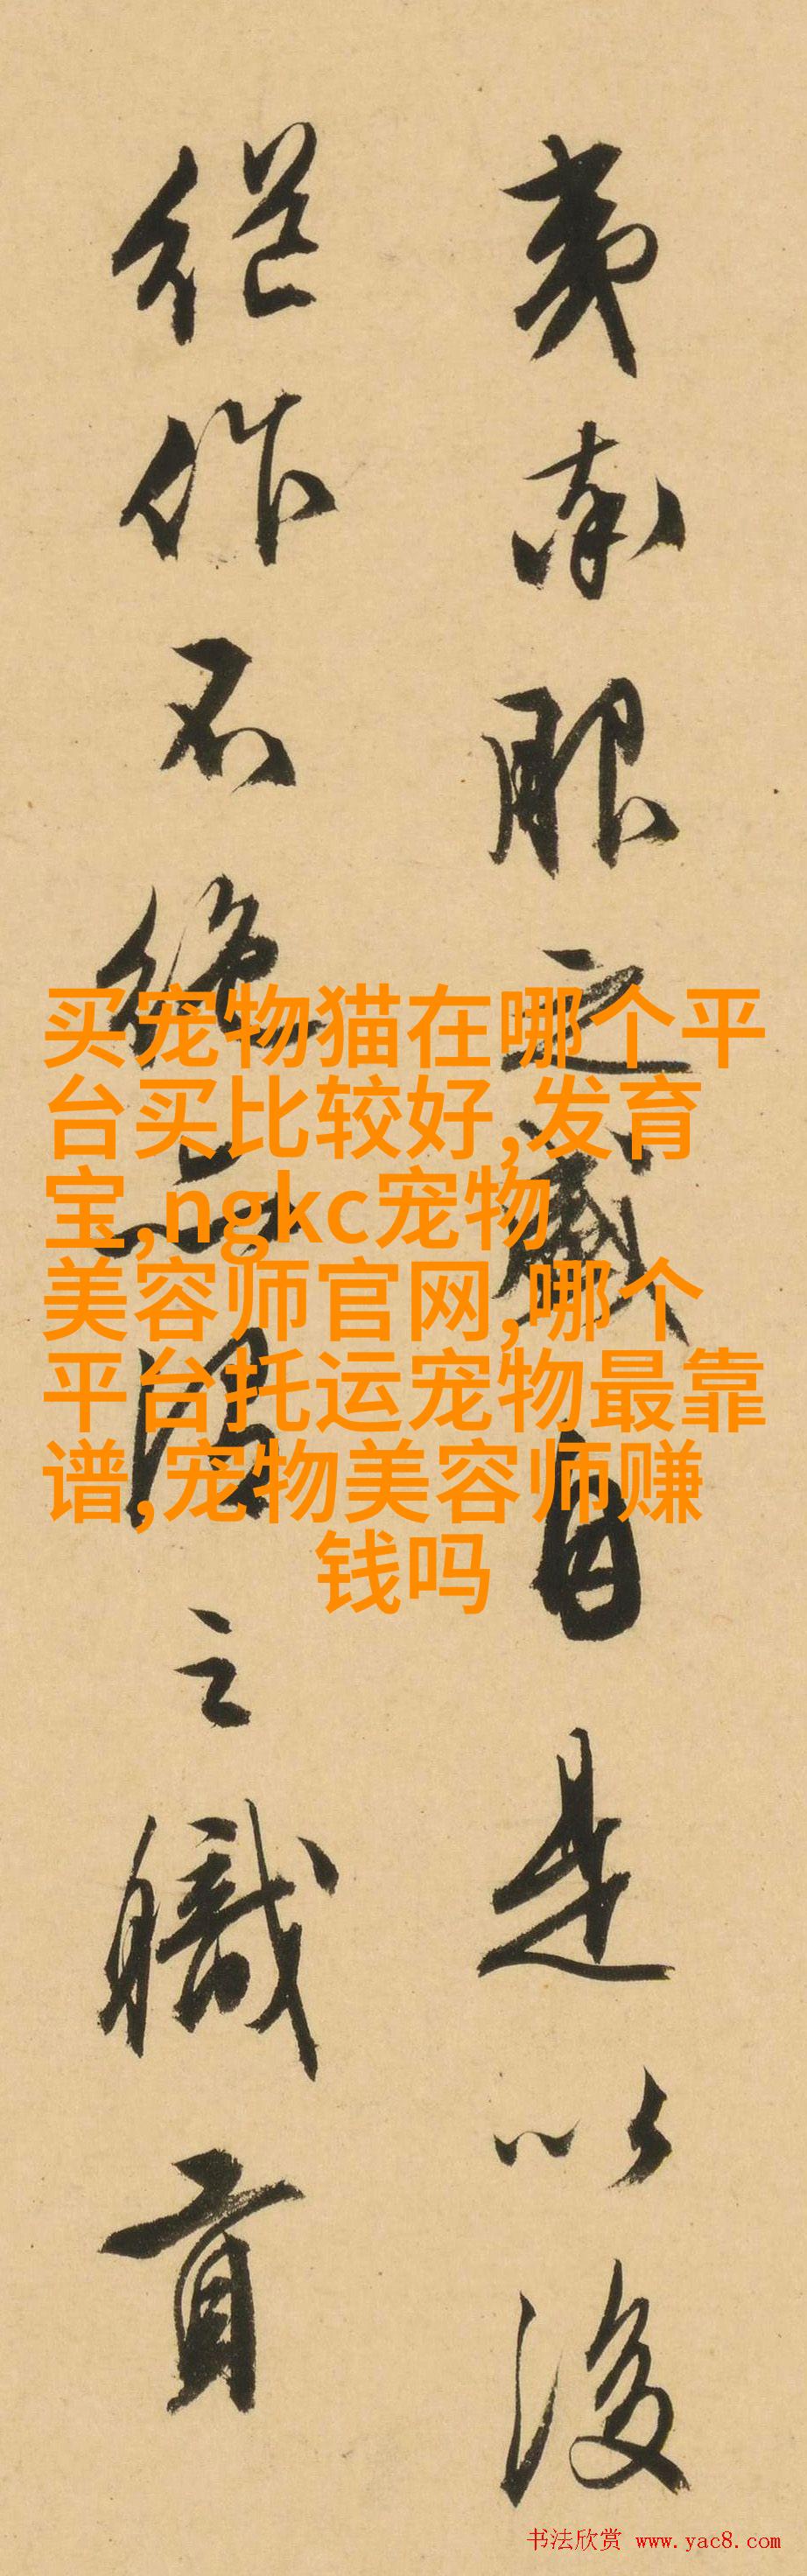 夷南服之自是以後
继作不之職貢
买宠物猫在哪个平
台买比较好,发育
宝,ngkc宠物
美容师官网,哪个
平台托运宠物最靠
谱,宠物美容师赚
钱吗
书法欣赏 www.yac8.com